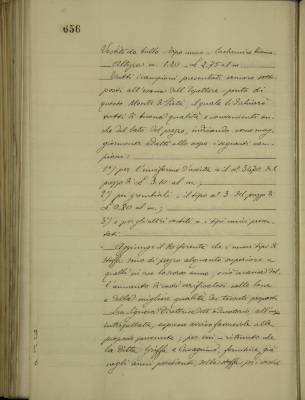 656
Vestito da ballo - tipo unico - cachemire bianco
Altezza m. 1.20 - £ 2.75 al m.
Tutti i campioni presentati vennero sotto-
posti all'esame dell'Ispettore perito di
questo Monte di Pietà, il quale li dichiarò
tutti di buona qualità e convenienti an-
che dal lato del prezzo, indicando come mag-
giormente adatti allo scopo i seguenti cam-
pioni:
1°) per l'uniforme d'uscita il n° 3470 del
prezzo di £ 3.10 al m;
2°) pei grembiali: il tipo n° 3 del prezzo di
£ 0.80 al m;
3°) e per gli altri vestiti i tipi unici presen-
tati.
Aggiunge il Referente che i nuovi tipi di
stoffa sono di prezzo alquanto superiore a
quelli in uso lo scorso anno, e ciò a causa del-
l'aumento di costo verificatosi sulla lana
e della migliore qualità dei tessuti proposti.
La Signora Direttrice dell'Educatorio, all'uopo
interpellata, espresse avviso favorevole alla
proposta presente; per cui - ritenuto che
la Ditta, fornitrice già
negli anni precedenti delle stoffe per vestiti